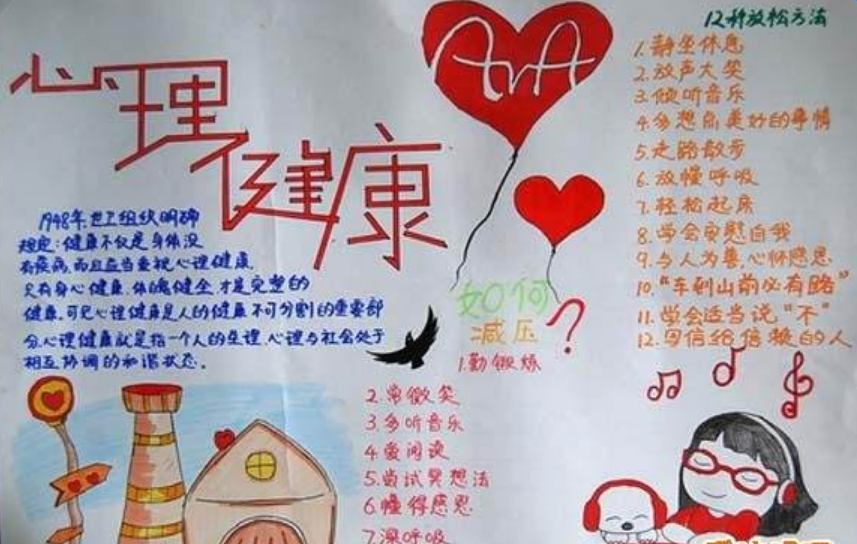 心理健康
ArA
1948年,世卫组织明确
规定:健康不仅是身体没
有疾病,而且应当重视心理健康,
只有身心健康、体魄健全,才是完整的
健康,可见心理健康是人的健康不可分割的重要部
分,心理健康就是指一个人的生理、心理与社会处于
相互协调的和谐状态。
如何
减压
?
1.勤锻炼
2.常微笑
3.多听音乐
4.爱阅读
5.尝试冥想法
6.懂得感恩
7.深呼吸
12种放松方法
1.静坐休息
2.放声大笑
3.倾听音乐
4.多想点美好的事情
5.走路散步
6.放慢呼吸
7.轻松起床
8.学会安慰自我
9.与人为善,心怀感恩
10."车到山前必有路"
11.学会适当说"不"
12.写信给信赖的人